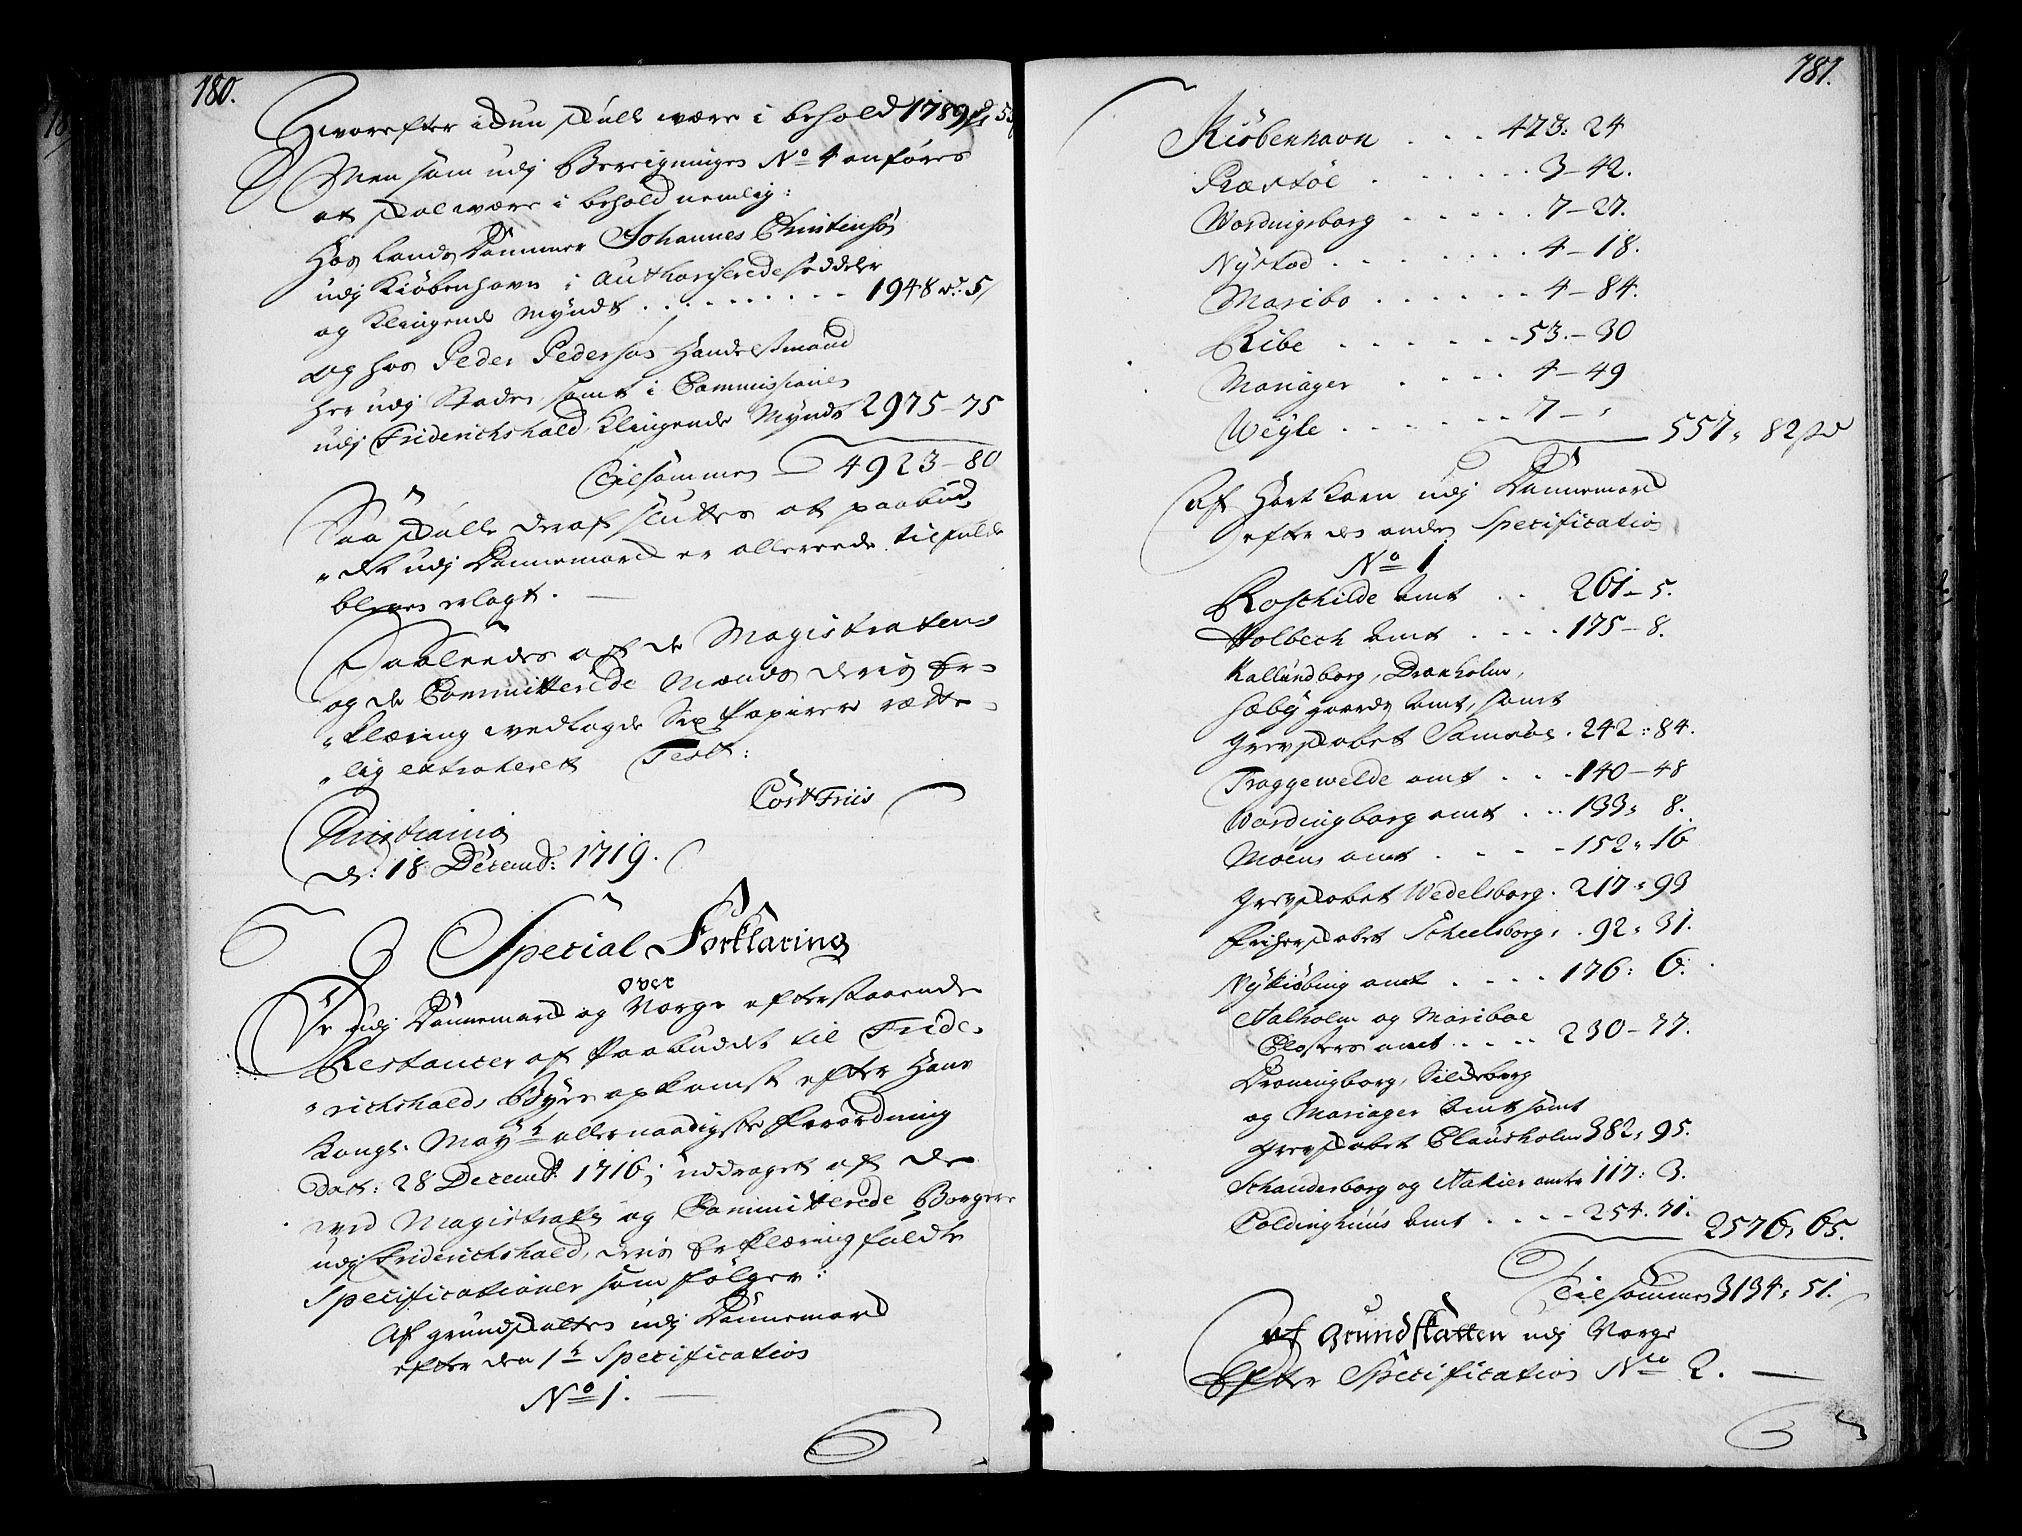 180.
Hvorefter ickun skulle være i behold 1789
Men som udj Bereigninges No 4 anføres
at skal være i behold nemlig:
Hos Lands Dommer Johannes Christensøn
udj Kiøbenhavn i authoriserede sedler
og klingende Myndt . . . . . . . . . 1948 rd. 5
og hos Peder Pedersøn Handelsmand
her udj Staden, samt i Commissionen
udj Friderichshald, klingende Myndt 2975 - 75
Tilsammen 4923 - 80
Saa skulle deraf sluttes at paabud„
„det udj Dannemarck er allereede tilfulde
blefven erlagt.
Saaleedes af de Magistratens
og de Committerede Mænds deris Er-
„klæring vedlagde Sex Papirer rætte-
„lig extraheret Test:
Cort Friis
Christiania
d: 18 Decemb: 1719.
Special Forklaring
over
De udj Dannemarck og Norge efterstaaende
Restancer af Paabuddet til Fride-
„richshalds Byes opkomst efter Hans
Kongl: Mayts allernaadigste Forordning
Dat: 28 Decemb: 1716, uddraget af de
ved Magistraten og Committerede Borgere
udj Friderichshald, deris Erklæring fuldte
Specificationer som følger:
Af grundskatten udj Dannemarck
efter den 1te Specification
No 1.
181.
Kiøbenhavn . . . 473: 24
Præstøe . . . . . . 3 - 42.
Wordingborg . . . . . 7 - 27.
Nysted . . . . . . . . 4 - 18.
Maribo . . . . . . 4 - 84.
Ribe . . . . . . 53. - 30
Mariager . . . . . 4 - 49
Weyle . . . . . . 7 - „
557, 82 s
Af Hart Korn udj Dannemarck
efter den anden Specification
No 1
Roschilde Amt . . 261 - 5.
Holbech Amt . . . . 175 - 8.
Kallundborg, Draxholm,
Sæbygaards Amt, samt
Grevskabet Samsøe . 242 : 84.
Traggewelde amt . . . 140 - 48
Wordingborg amt . . . 133 : 8.
Møens amt . . . . 152 : 16
Grevskabet Wedelsborg . 217 : 93
Friherskabet Scheelsborg . . 92 : 31.
Nykiøbing amt . . . . 176 : 6.
Aalholm og Mariboe
Closters amt . . . . 230 - 77.
Dronningborg, Silckeborg
og Mariager Amt samt
Grevskabet Clausholm 382 : 95.
Schanderborg og Aakier amter 117 : 3.
Coldinghuus Amt . . . . 254. 71.
2576 : 65.
Tilsammen 3134 : 51.
af Grundskatten udj Norge
Efter Specification No 2.